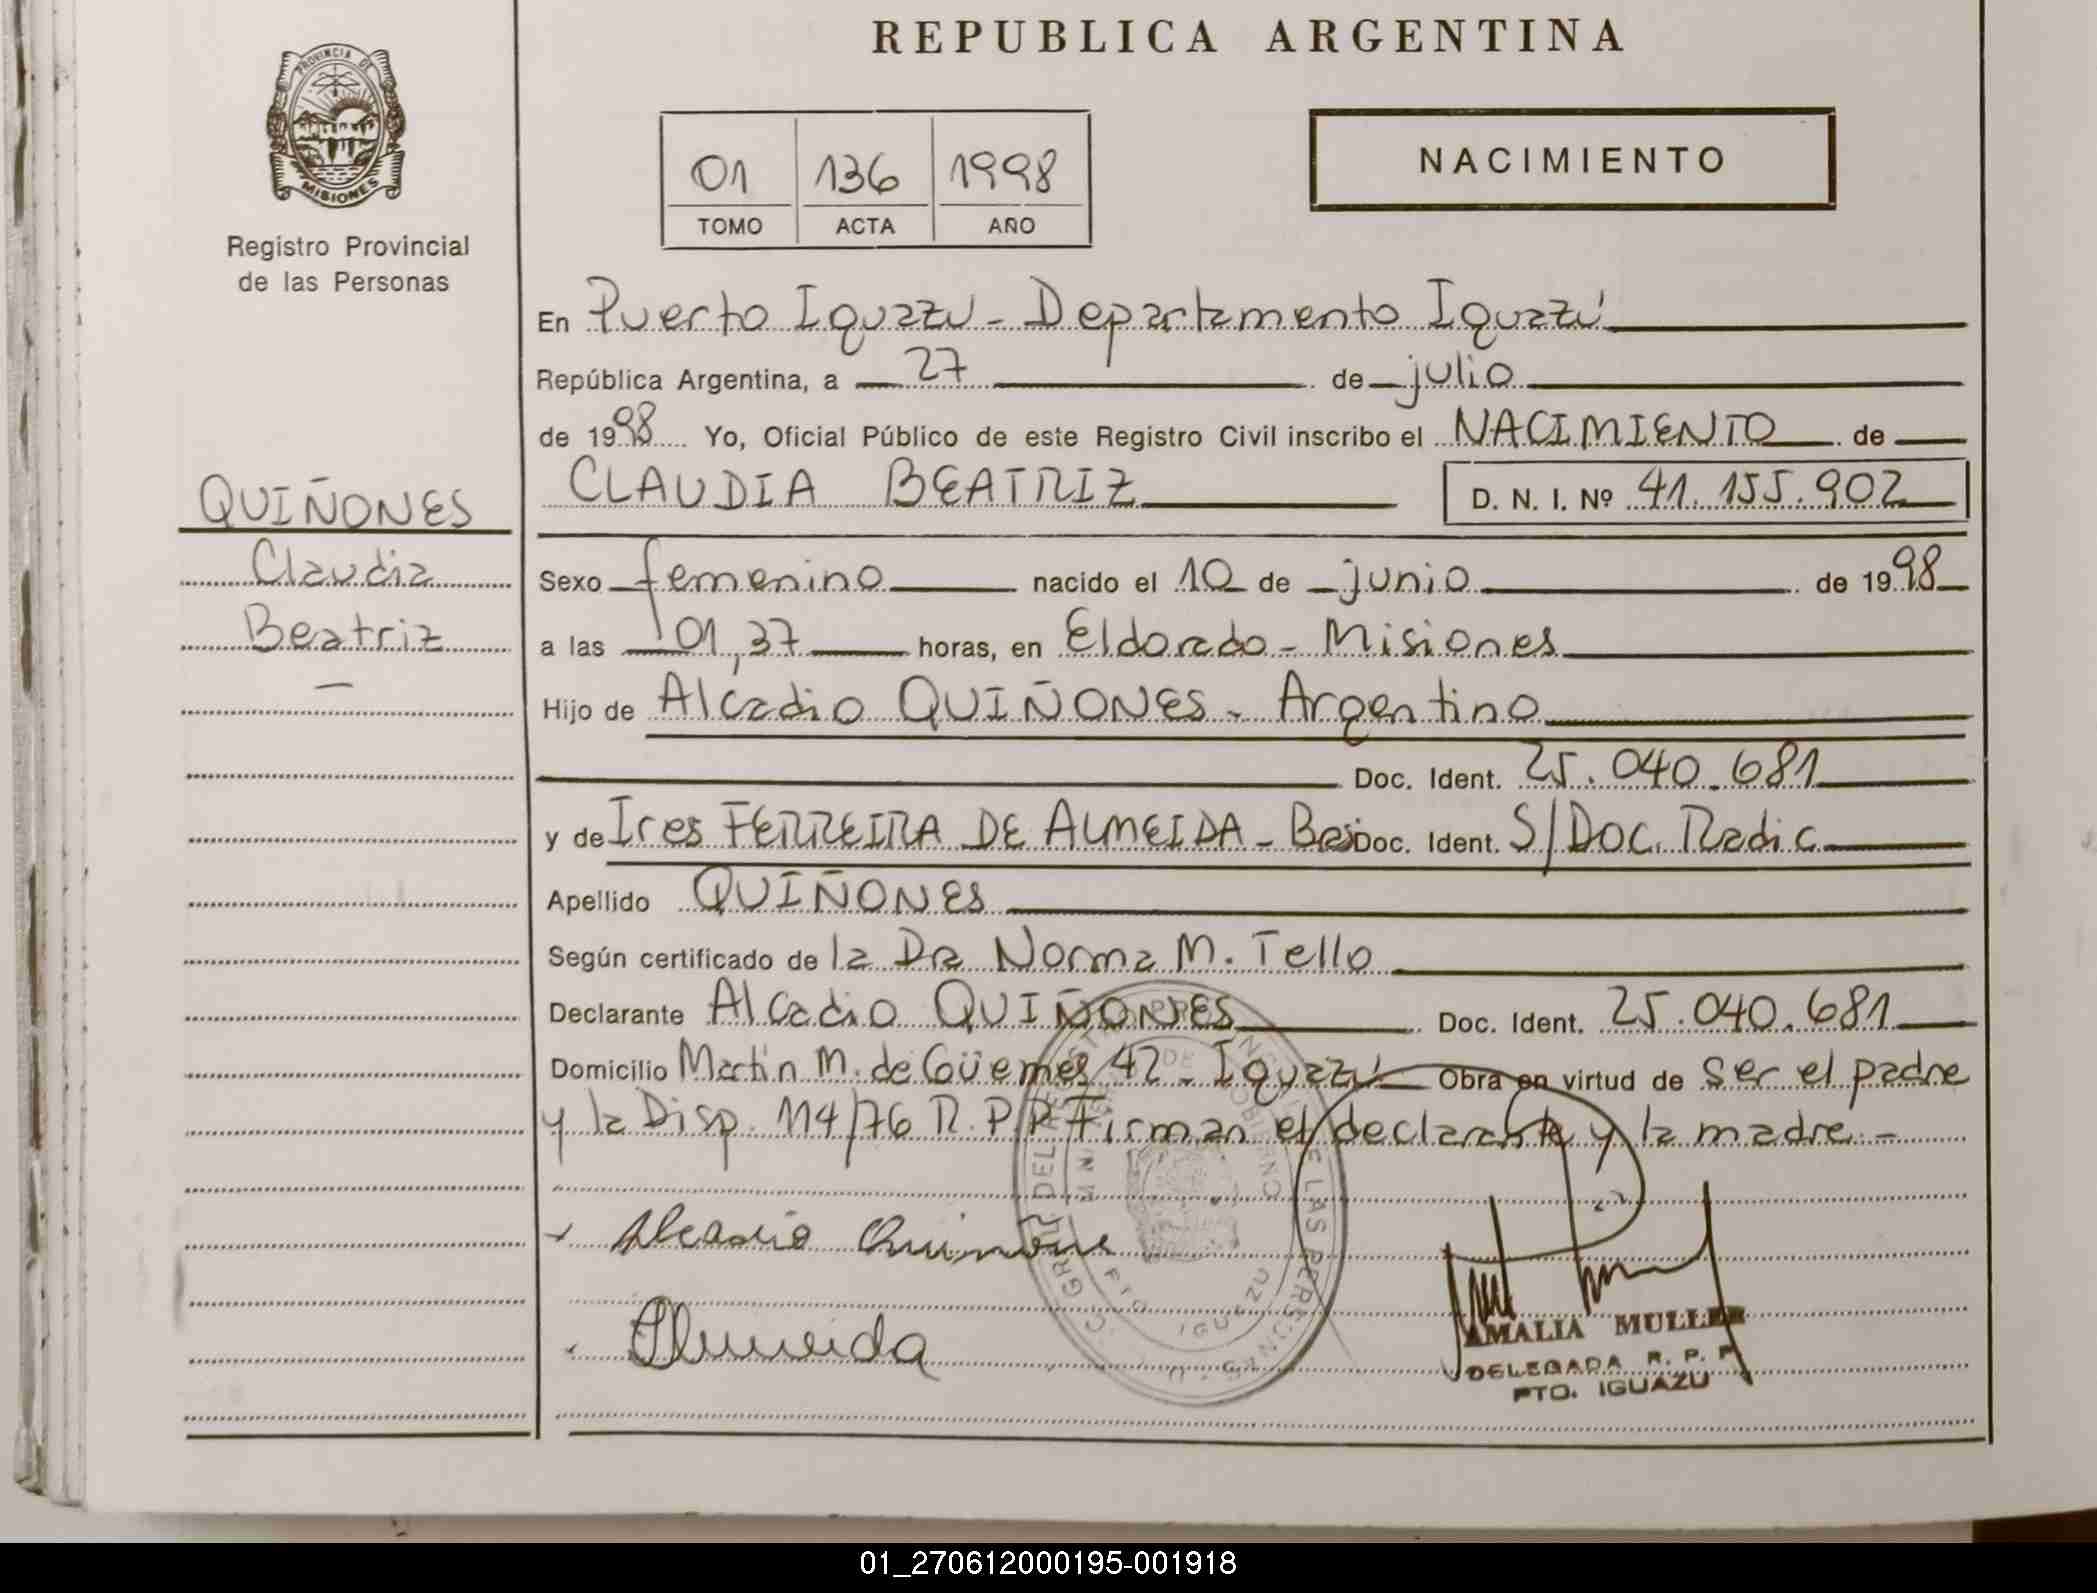 REPUBLICA ARGENTINA
PROVINCIA DE
MISIONES
Registro Provincial
de las Personas
01 136 1998
TOMO ACTA AÑO
NACIMIENTO
En Puerto Iguazu - Departamento Iguazú
República Argentina, a 27 de julio
de 1998 Yo, Oficial Público de este Registro Civil inscribo el NACIMIENTO de
CLAUDIA BEATRIZ D. N. I. Nº 41.155.902
QUIÑONES
Claudia
Beatriz
Sexo femenino nacido el 10 de junio de 1998
a las 01,37 horas, en Eldorado - Misiones
Hijo de Alcadio QUIÑONES - Argentino
Doc. Ident. 25.040.681
y de Ires FERREIRA DE ALMEIDA - Doc. Ident. S/DOC. Radic
Apellido QUIÑONES
Según certificado de la Dra Norma M. Tello
Declarante Alcadio QUIÑONES Doc. Ident. 25.040.681
Domicilio Martin M. de Güemes 42 - Iguazú Obra en virtud de ser el padre
y la Disp. 114/76 R.P.P. Firman el declarante y la madre -
Alcadio Quiñone
Almeida
AMALIA MULLER
DELEGADA R. P. P
PTO. IGUAZU
01_270612000195-001918